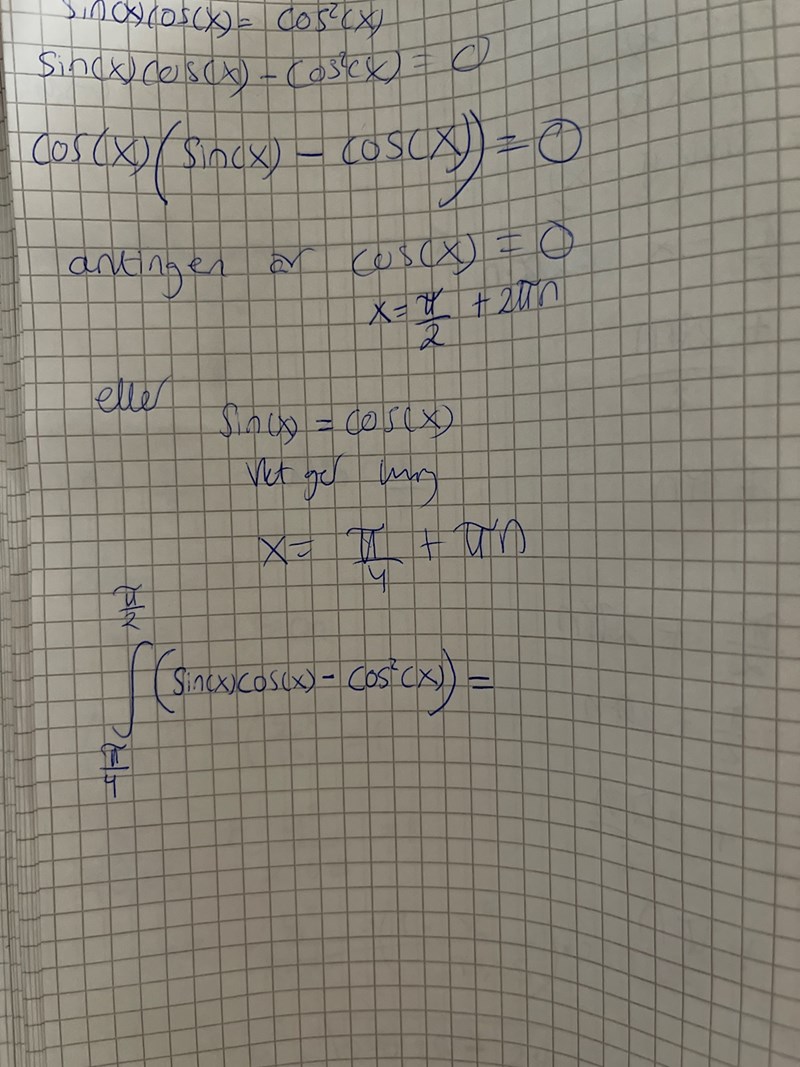 sin(x)cos(x) = cos²(x)
sin(x)cos(x) - cos²(x) = 0
cos(x)(sin(x) - cos(x)) = 0
antingen är cos(x) = 0
x = π/2 + 2πn
eller
sin(x) = cos(x)
Det ger
x = π/4 + πn
π/2
∫ (sin(x)cos(x) - cos²(x)) =
π/4